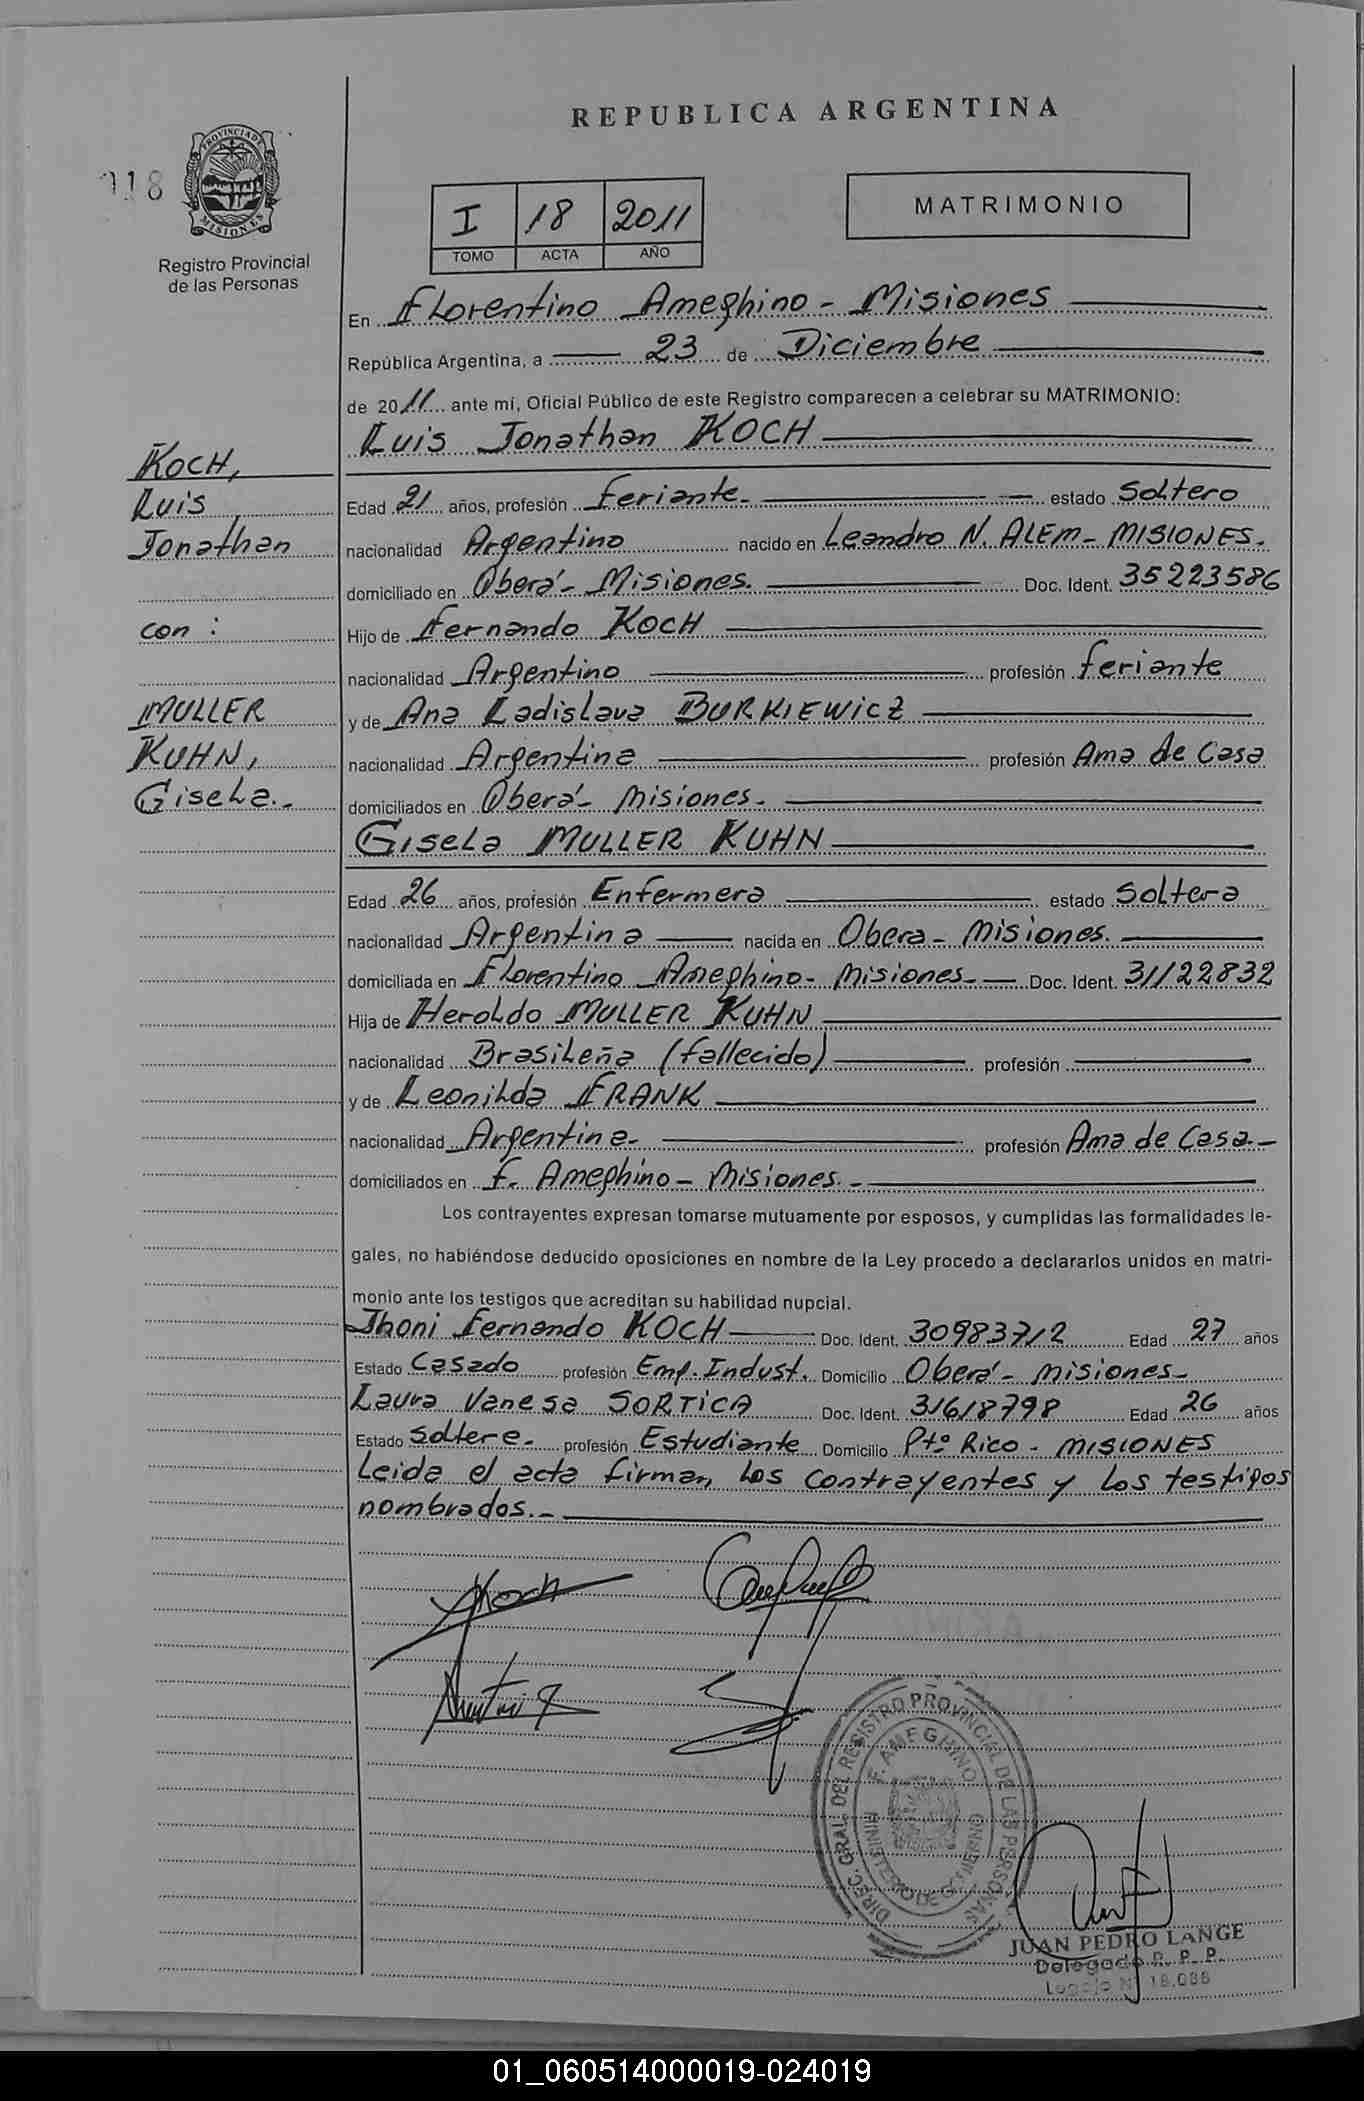 REPUBLICA ARGENTINA
018
PROVINCIA DE MISIONES
Registro Provincial
de las Personas
I 18 2011
TOMO ACTA AÑO
MATRIMONIO
En Florentino Ameghino - Misiones
República Argentina, a 23 de Diciembre
de 2011 ante mí, Oficial Público de este Registro comparecen a celebrar su MATRIMONIO:
Luis Jonathan KOCH
KOCH,
Luis
Jonathan
con :
MULLER
KUHN,
Gisela.-
Edad 21 años, profesión Feriante.- estado Soltero
nacionalidad Argentino nacido en Leandro N. ALEM - MISIONES.
domiciliado en Oberá - Misiones. Doc. Ident. 35223586
Hijo de Fernando KOCH
nacionalidad Argentino profesión feriante
y de Ana Ladislava BURKIEWICZ
nacionalidad Argentina profesión Ama de Casa
domiciliados en Oberá - Misiones.
Gisela MULLER KUHN
Edad 26 años, profesión Enfermera estado Soltera
nacionalidad Argentina nacida en Obera - Misiones.
domiciliada en Florentino Ameghino - Misiones.- Doc. Ident. 31122832
Hija de Heroldo MULLER KUHN
nacionalidad Brasileña (fallecido) profesión
y de Leonilda FRANK
nacionalidad Argentina.- profesión Ama de Casa.-
domiciliados en F. Ameghino - Misiones.-
Los contrayentes expresan tomarse mutuamente por esposos, y cumplidas las formalidades le-
gales, no habiéndose deducido oposiciones en nombre de la Ley procedo a declararlos unidos en matri-
monio ante los testigos que acreditan su habilidad nupcial.
Jhoni Fernando KOCH Doc. Ident. 30983712 Edad 27 años
Estado Casado profesión Emp. Indust. Domicilio Oberá - Misiones
Laura Vanesa SORTICA Doc. Ident. 31618798 Edad 26 años
Estado Soltera.- profesión Estudiante Domicilio Pto Rico - MISIONES
Leida el acta firman los contrayentes y los testigos
nombrados.-
Koch
DIREC. GRAL. DEL REGISTRO PROVINCIAL DE LAS PERSONAS
F. AMEGHINO
MINISTERIO DE GOBIERNO
JUAN PEDRO LANGE
Delegado R. P. P.
Legajo N° 18.088
01_060514000019-024019